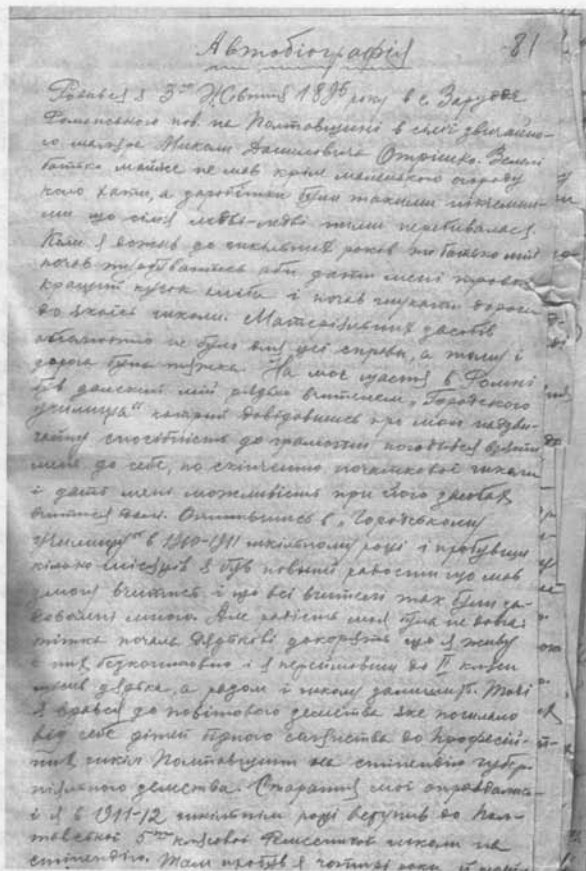 Автобіографія 81
Родився я 3го Жовтня 1896 року в с. Заруддя
Роменського пов. на Полтавщині в сімї звичайно-
го маляра Миколи Даниловича Отрішко. Землі
батько майже не мав крім маленького огороду
коло хати, а заробітки були такими мізерни-
ми що сімя ледві-ледві ними перебивалася.
Коли я дожив до шкільних років то батько мій
почав турбуватись аби дати мені трохи
кращий кусок хліба і почав шукати дороги
до якоїсь школи. Матеріяльних засобів
абсолютно не було для цеї справи, а тому і
дорога була тяжка. На моє щастя в Ромні
був далекий мій дядько вчителем „Городского
училища" котрий довідавшись про мою надзви-
чайну спосібність до грамоти погодився взяти
мене до себе, по скінченню початкової школи
і дать мені можливість при його засобах
вчитися далі. Опинившись в „Городському
училищі" в 1910-1911 шкільному році і пробувши
кілька місяців я був повний радости що мав
змогу вчитись і що всі вчителі теж були за-
доволені мною. Але радість моя була не довга:
тітка почала дядькові докоряти що я живу
в них безкоштовно і я перейшовши до II класи
лишив дядька, а разом й школу залишити. Тоді
я вдався до повітового земства яке посилало
від себе дітей бідного селянства до професій-
них шкіл Полтавщини на стипендію губер-
ніяльного земства. Старання мої оправдались
і я в 1911-12 шкільнім році вступив до Пол-
тавської 5ти класової Ремесничої школи на
стипендію. Там пробув я чотирі роки й